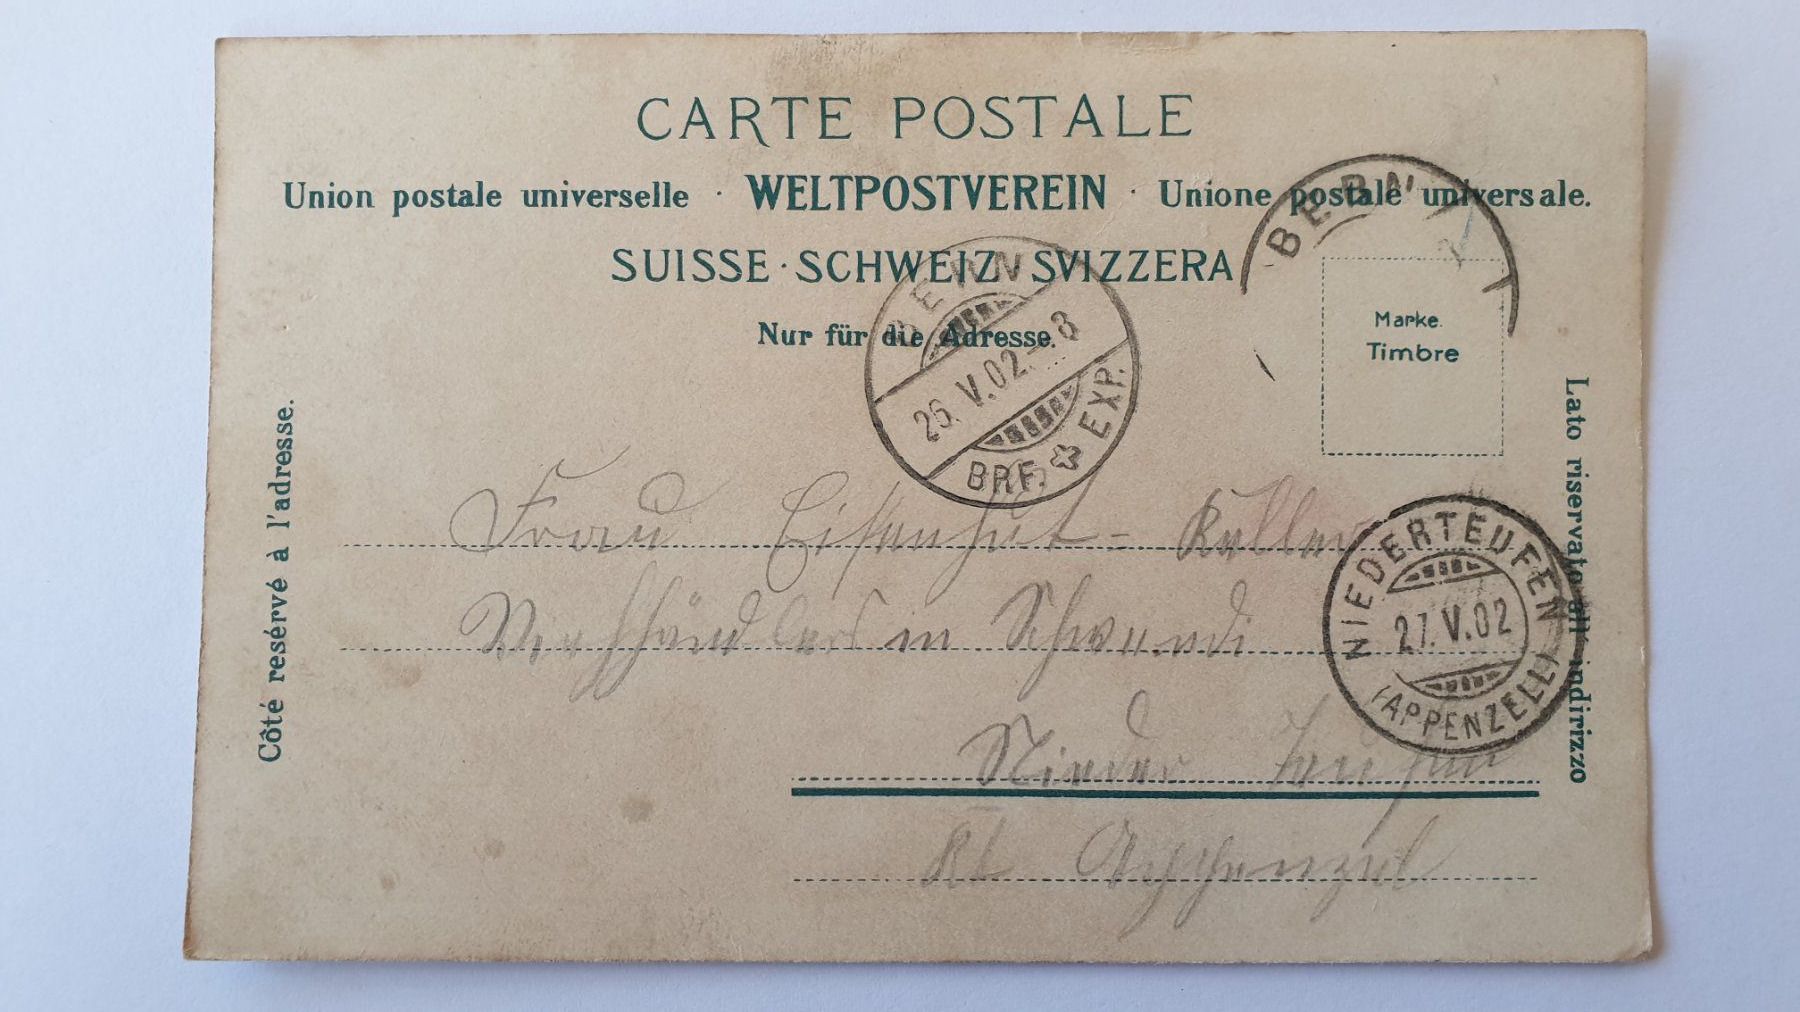 CARTE POSTALE
Union postale universelle · WELTPOSTVEREIN · Unione postale universale.
SUISSE · SCHWEIZ · SVIZZERA
Nur für die Adresse.
BERN
BERN
26.V.02.-8
BRF. EXP.
Marke.
Timbre
Côté resérvé à l'adresse.
Lato riservato all' indirizzo
NIEDERTEUFEN
27.V.02
(APPENZELL)
Frau Eisenhut-Keller
in Schwendi
Nieder Teufen
Kt Appenzel